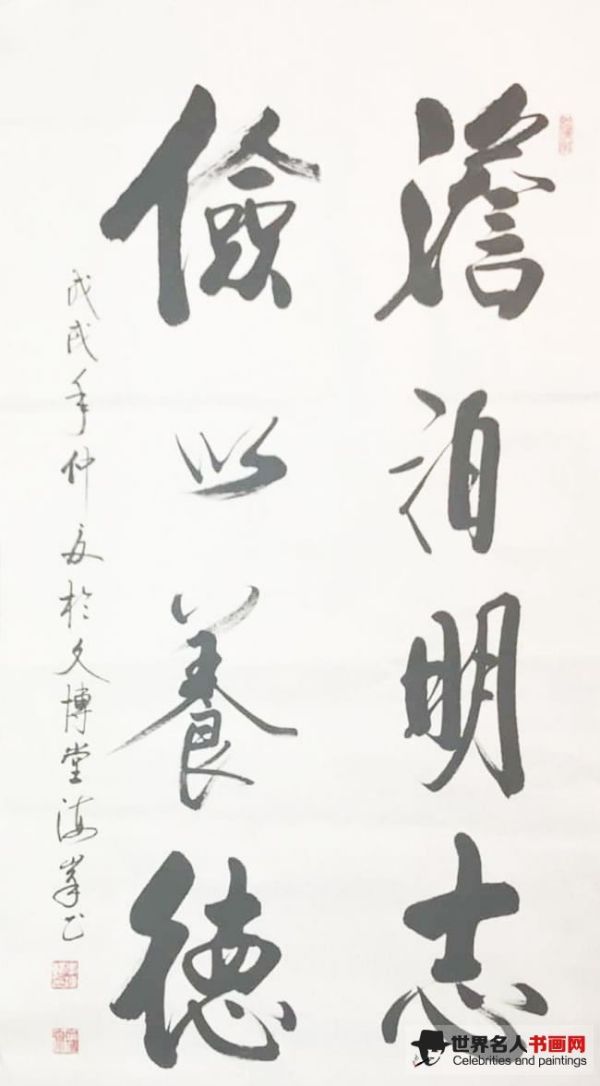 澹泊明志
儉以養德
戊戌年仲夏於文博堂海峯书
世界名人书画网
Celebrities and paintings